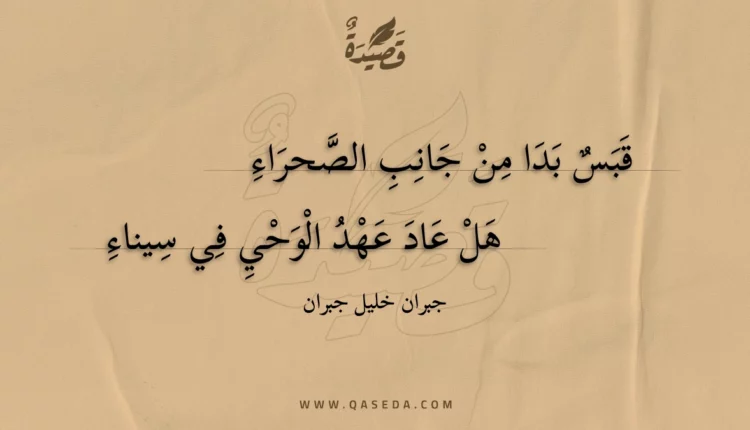 قَصِيدَةٌ
قَبَسٌ بَدَا مِنْ جَانِبِ الصَّحرَاءِ
هَلْ عَادَ عَهْدُ الْوَحْيِ فِي سِيناءِ
جبران خليل جبران
WWW.QASEDA.COM